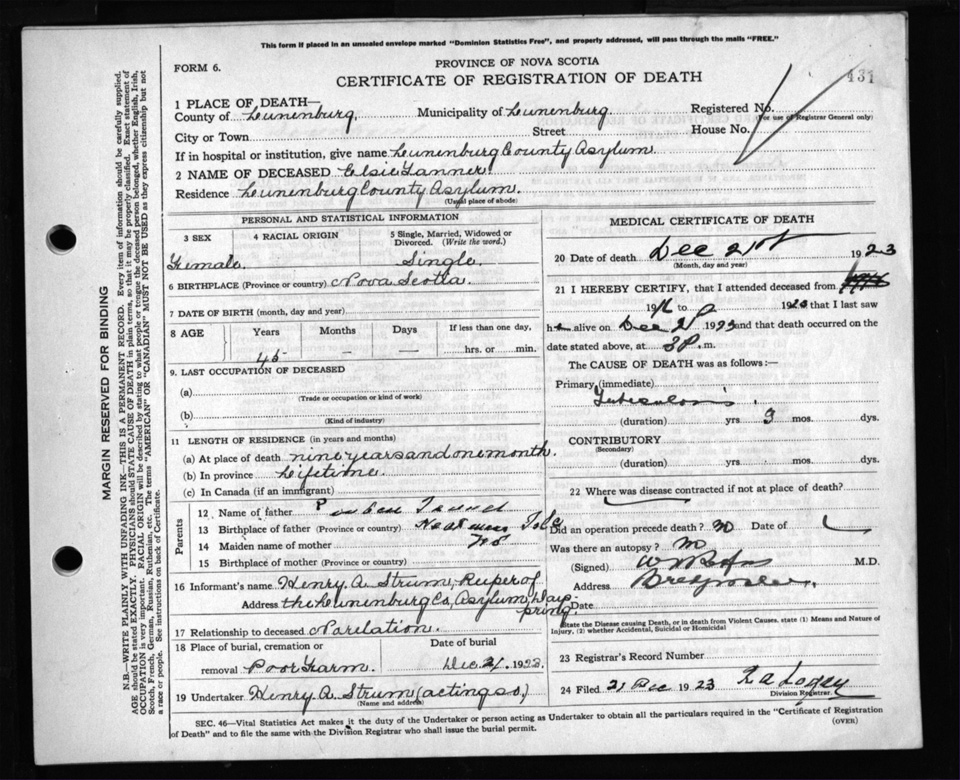 This form if placed in an unsealed envelope marked "Dominion Statistics Free", and properly addressed, will pass through the mails "FREE."
FORM 6.
PROVINCE OF NOVA SCOTIA
CERTIFICATE OF REGISTRATION OF DEATH
431
1 PLACE OF DEATH—
County of Lunenburg. Municipality of Lunenburg. Registered No.
(For use of Registrar General only)
City or Town Street House No.
If in hospital or institution, give name Lunenburg County Asylum
2 NAME OF DECEASED Elsie Tanner.
Residence Lunenburg County Asylum.
(Usual place of abode)
PERSONAL AND STATISTICAL INFORMATION
3 SEX 4 RACIAL ORIGIN 5 Single, Married, Widowed or Divorced. (Write the word.)
Female. Single.
6 BIRTHPLACE (Province or country) Nova Scotia.
7 DATE OF BIRTH (month, day and year)
8 AGE Years Months Days If less than one day,
45 — — hrs. or min.
9. LAST OCCUPATION OF DECEASED
(a)
(Trade or occupation or kind of work)
(b)
(Kind of industry)
11 LENGTH OF RESIDENCE (in years and months)
(a) At place of death nine years and one month.
(b) In province Lifetime.
(c) In Canada (if an immigrant)
Parents
12 Name of father
13 Birthplace of father (Province or country)
14 Maiden name of mother
15 Birthplace of mother (Province or country)
16 Informant's name Henry A. Strum, Keeper of
Address the Lunenburg Co, Asylum, Dayspring.
17 Relationship to deceased No relation.
18 Place of burial, cremation or removal Poor Farm. Date of burial Dec. 21. 1923.
19 Undertaker Henry A. Strum (acting so)
(Name and address)
MEDICAL CERTIFICATE OF DEATH
20 Date of death Dec 21st 1923
(Month, day and year)
21 I HEREBY CERTIFY, that I attended deceased from
19 to 19 that I last saw
h alive on Dec 1923 and that death occurred on the
date stated above, at 3 P. m.
The CAUSE OF DEATH was as follows:—
Primary (immediate)
Tuberculosis.
(duration) yrs 9 mos. dys.
CONTRIBUTORY
(Secondary)
(duration) yrs. mos. dys.
22 Where was disease contracted if not at place of death?
Did an operation precede death? no Date of
Was there an autopsy? no
(Signed) M.D.
Address Bridgewater.
Date
State the Disease causing Death, or in death from Violent Causes, state (1) Means and Nature of Injury, (2) whether Accidental, Suicidal or Homicidal
23 Registrar's Record Number
24 Filed 21 Dec 1923
Division Registrar.
SEC. 46—Vital Statistics Act makes it the duty of the Undertaker or person acting as Undertaker to obtain all the particulars required in the "Certificate of Registration
of Death" and to file the same with the Division Registrar who shall issue the burial permit.
(OVER)
MARGIN RESERVED FOR BINDING
N.B.—WRITE PLAINLY WITH UNFADING INK—THIS IS A PERMANENT RECORD. Every item of information should be carefully supplied.
AGE should be stated EXACTLY. PHYSICIANS should STATE CAUSE OF DEATH in plain terms, so that it may be properly classified. Exact statement of
OCCUPATION is very important. RACIAL ORIGIN will be described by stating to what people or tongue the deceased person belonged, whether English, Irish,
Scotch, French, German, Russian, Ruthenian, etc. The terms "AMERICAN" or "CANADIAN" MUST NOT BE USED as they express citizenship but not
a race or people. See instructions on back of Certificate.